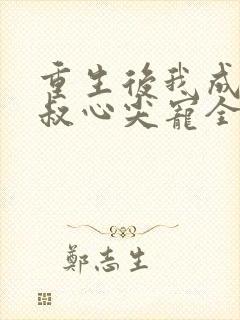 重生後我成
叔心尖寵全
鄭志生